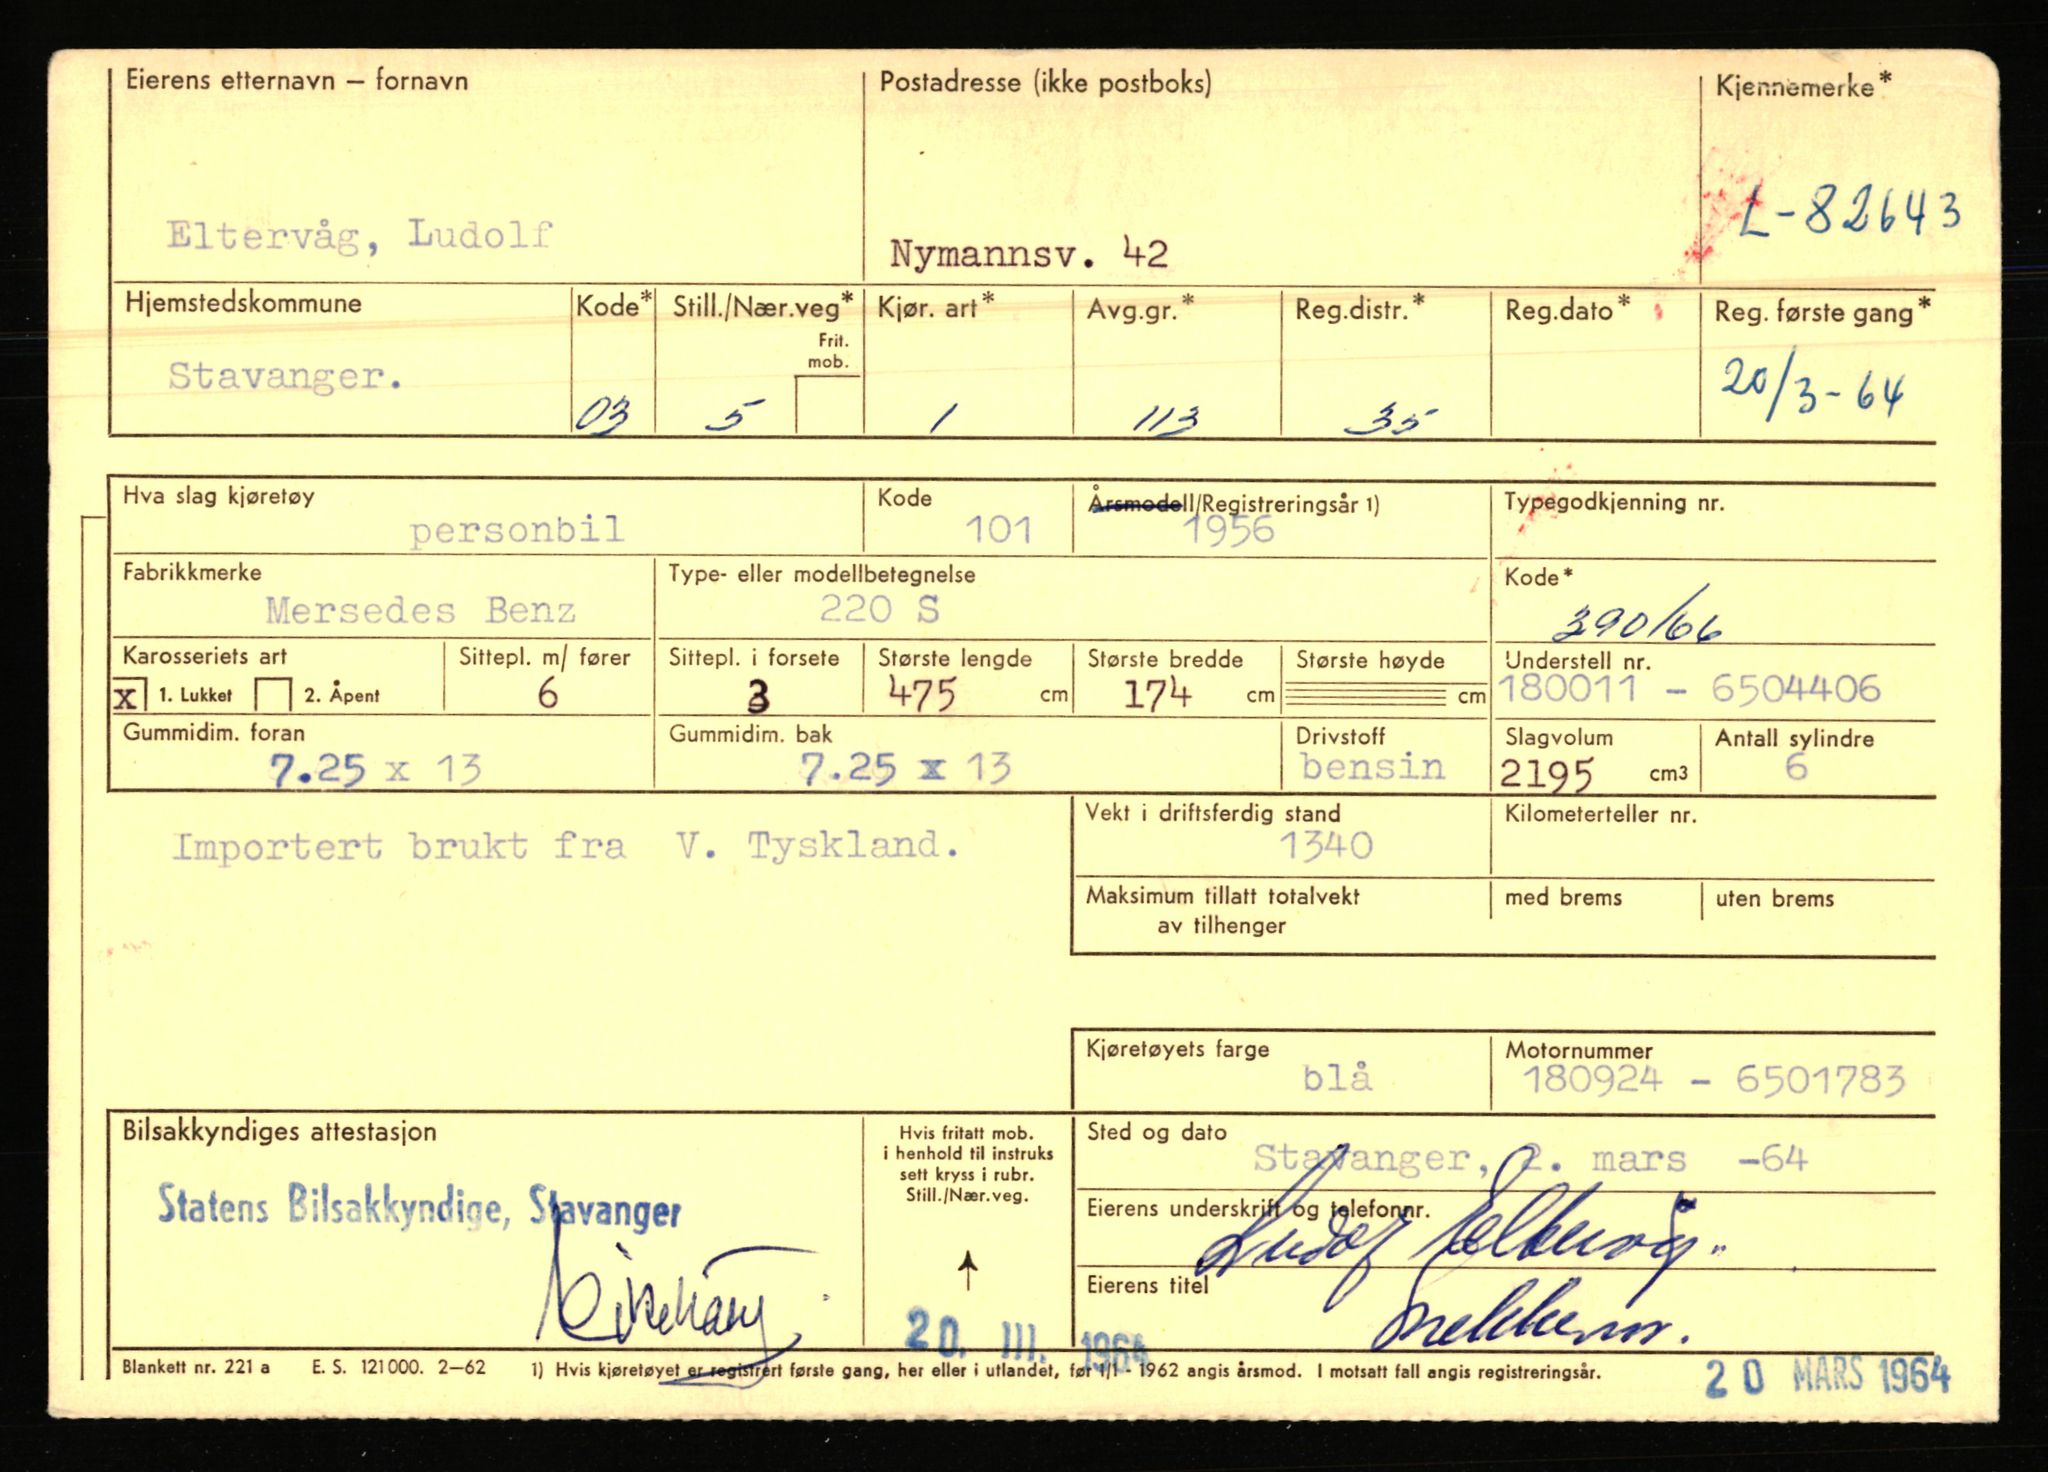 Eierens etternavn – fornavn Postadresse (ikke postboks) Kjennemerke*
Eltervåg, Ludolf Nymannsv. 42 L-82643
Hjemstedskommune Kode* Still./Nær.veg* Kjør. art* Avg.gr.* Reg.distr.* Reg.dato* Reg. første gang*
Frit.
mob.
Stavanger. 03 5 1 113 35 20/3-64
Hva slag kjøretøy Kode Årsmodell/Registreringsår 1) Typegodkjenning nr.
personbil 101 1956
Fabrikkmerke Type- eller modellbetegnelse Kode*
Mersedes Benz 220 S 390/66
Karosseriets art Sittepl. m/ fører Sittepl. i forsete Største lengde Største bredde Største høyde Understell nr.
X 1. Lukket 2. Åpent 6 3 475 cm 174 cm cm 180011 - 6504406
Gummidim. foran Gummidim. bak Drivstoff Slagvolum Antall sylindre
7.25 x 13 7.25 x 13 bensin 2195 cm3 6
Importert brukt fra V. Tyskland.
Vekt i driftsferdig stand Kilometerteller nr.
1340
Maksimum tillatt totalvekt med brems uten brems
av tilhenger
Kjøretøyets farge Motornummer
blå 180924 - 6501783
Bilsakkyndiges attestasjon
Statens Bilsakkyndige, Stavanger
Hvis fritatt mob.
i henhold til instruks
sett kryss i rubr.
Still./Nær.veg.
20. III. 1964
Sted og dato
Stavanger, 2. mars -64
Eierens underskrift og telefonnr.
Ludolf Eltervåg.
Eierens titel
Blankett nr. 221 a E. S. 121000. 2–62 1) Hvis kjøretøyet er registrert første gang, her eller i utlandet, før 1/1 - 1962 angis årsmod. I motsatt fall angis registreringsår.
20 MARS 1964